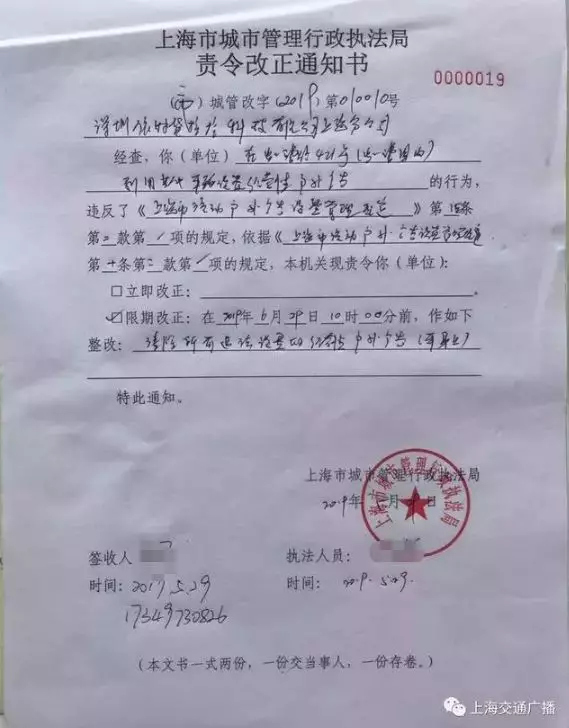 上海市城市管理行政执法局
责令改正通知书
0000019
城管改字(2019)第010010号
科技有限公司上海分公司
经查,你(单位)
的行为,
违反了《上海市流动户外广告设置管理规定》第 条
第二款第 项的规定,依据《上海市流动户外广告设置管理规定
第十条第二款第 项的规定,本机关现责令你(单位):
□立即改正:
☑限期改正:在2019年6月29日10时00分前,作如下
整改:清除所有违法设置的 户外广告
特此通知。
上海市城市管理行政执法局
2019年 月 日
上海市城市管理行政执法局
签收人
执法人员:
时间:2019.5.29
时间:2019.5.29.
17349730826
(本文书一式两份,一份交当事人,一份存卷。)
上海交通广播